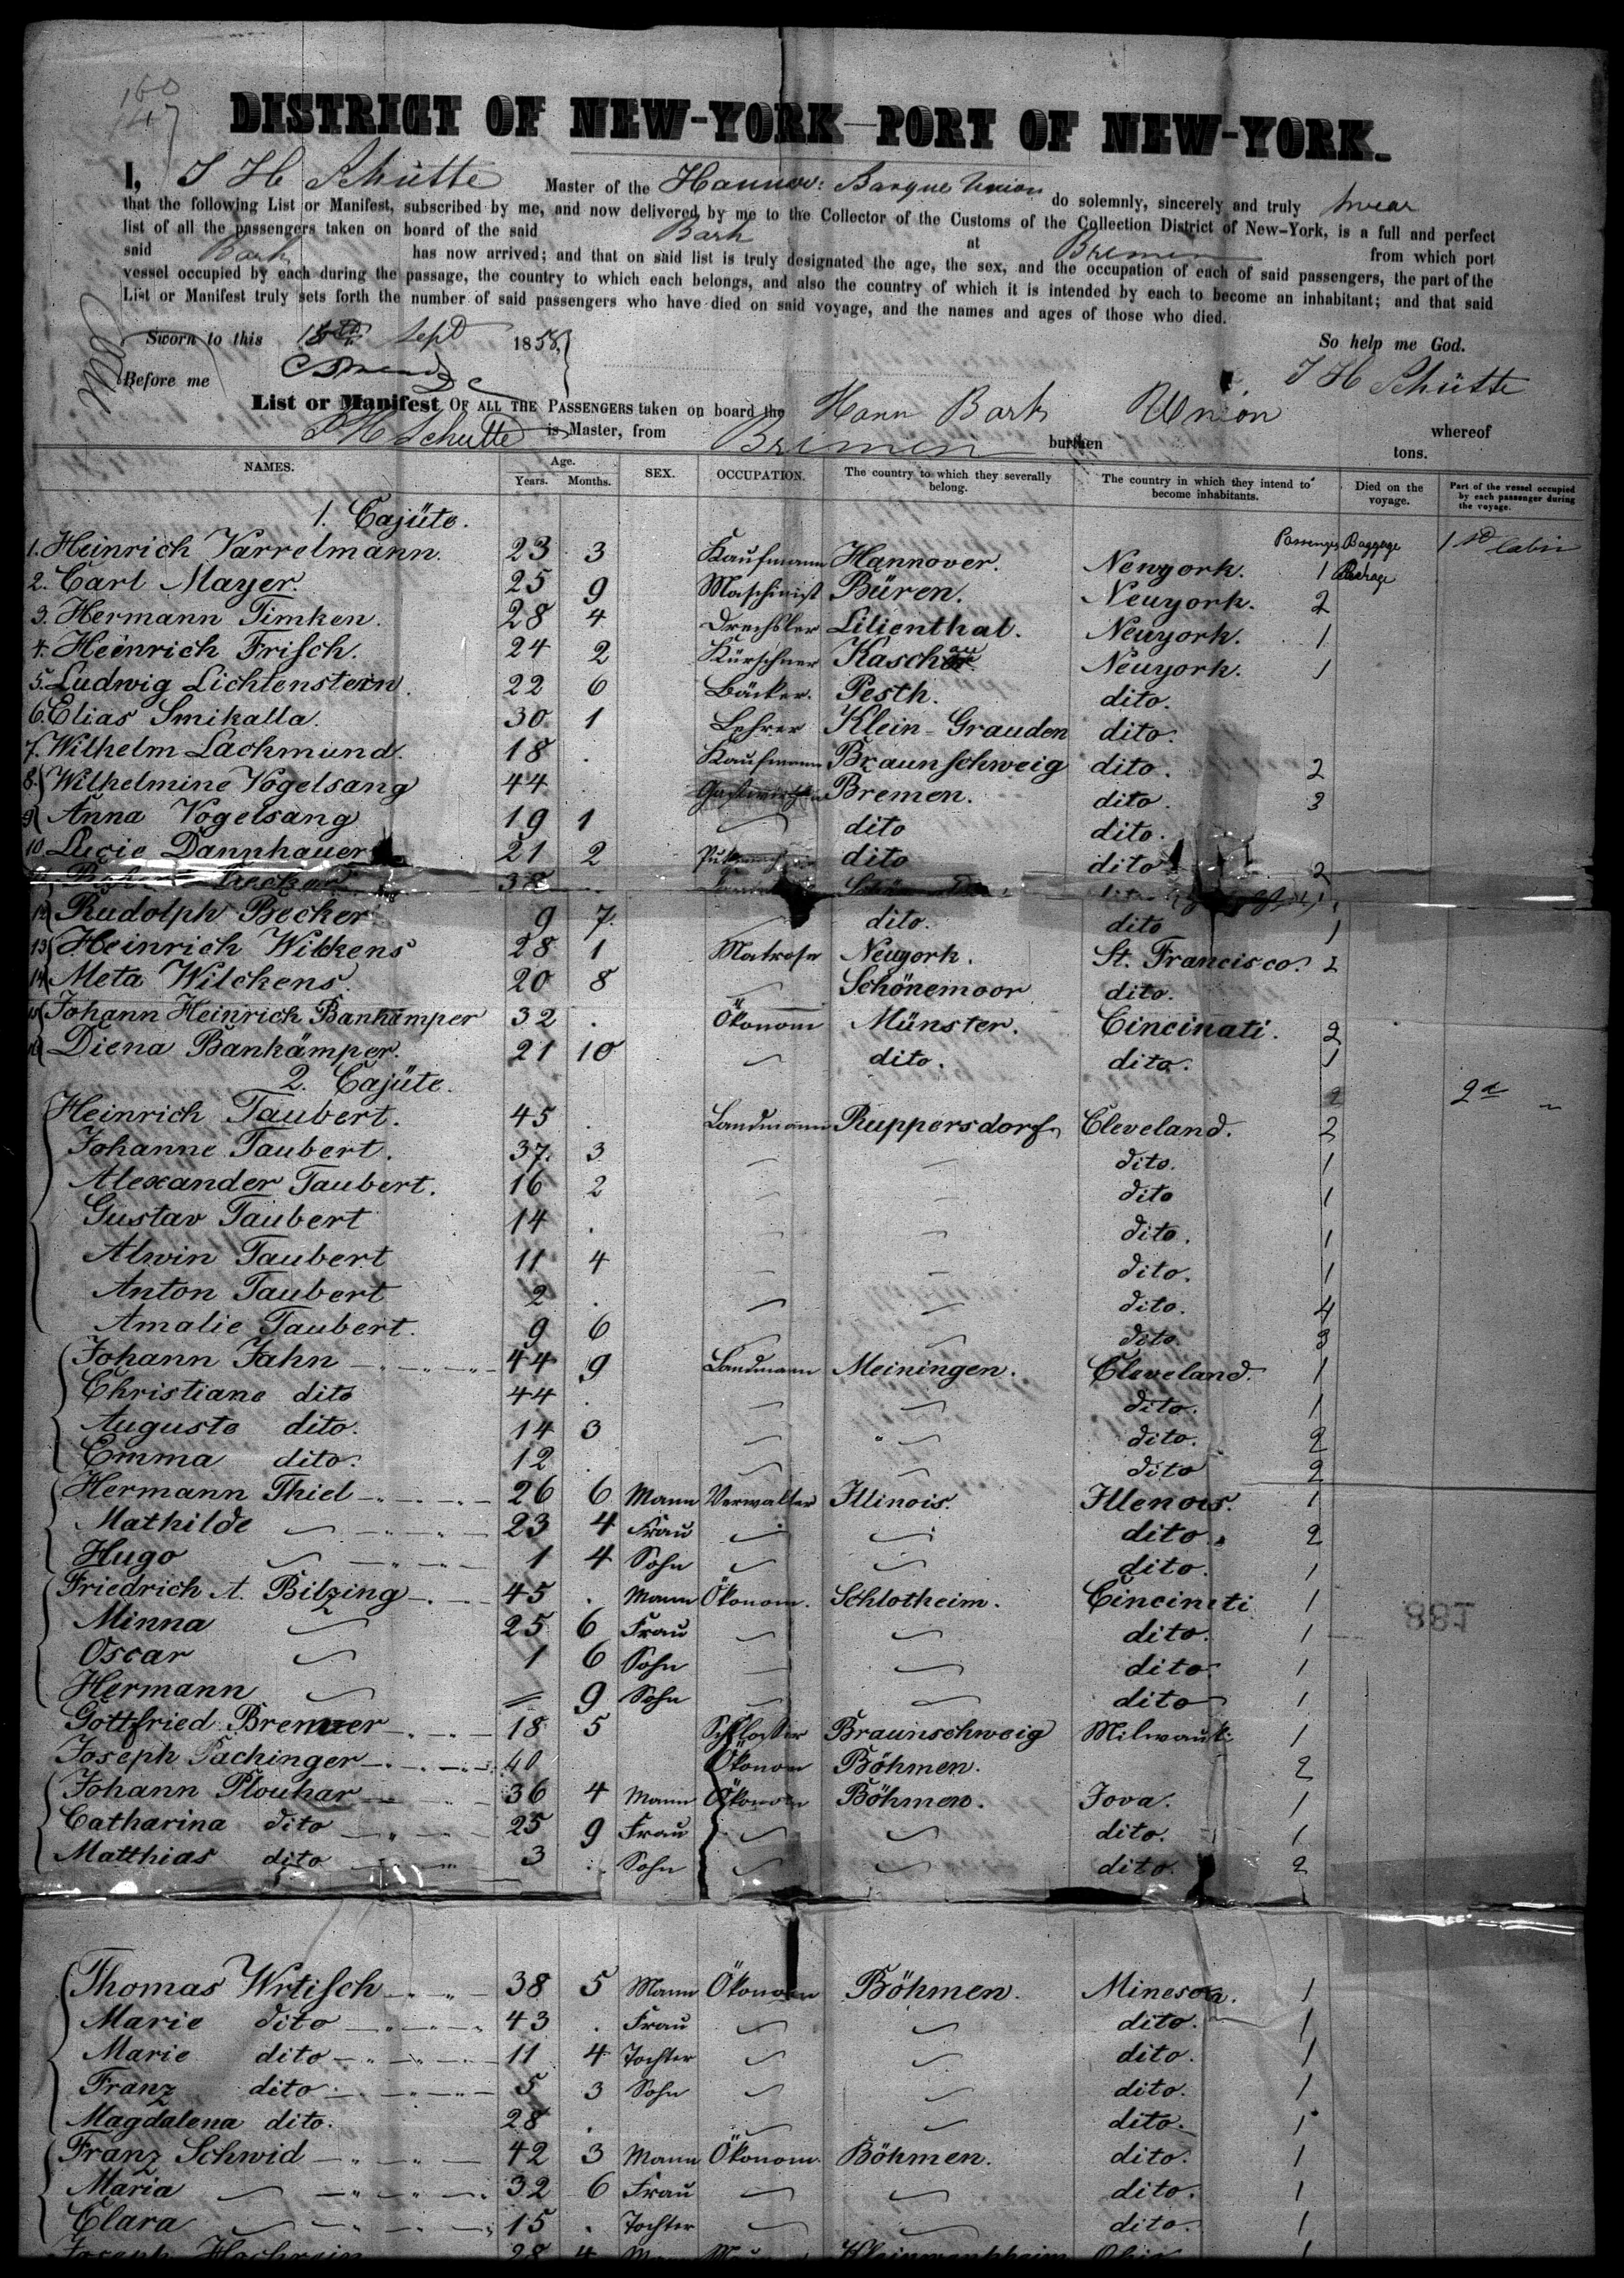 160
147
DISTRICT OF NEW-YORK—PORT OF NEW-YORK.
I, J H Schütte Master of the Hannov: Barque Union do solemnly, sincerely and truly swear
that the following List or Manifest, subscribed by me, and now delivered by me to the Collector of the Customs of the Collection District of New-York, is a full and perfect
list of all the passengers taken on board of the said Bark at Bremen from which port
said Bark has now arrived; and that on said list is truly designated the age, the sex, and the occupation of each of said passengers, the part of the
vessel occupied by each during the passage, the country to which each belongs, and also the country of which it is intended by each to become an inhabitant; and that said
List or Manifest truly sets forth the number of said passengers who have died on said voyage, and the names and ages of those who died.
Sworn to this Sept 1858, So help me God.
Before me J H Schütte
List or Manifest OF ALL THE PASSENGERS taken on board the Hann Bark Union whereof
J H Schutte is Master, from Bremen burthen tons.
NAMES. Age. Years. Months. SEX. OCCUPATION. The country to which they severally belong. The country in which they intend to become inhabitants. Died on the voyage. Part of the vessel occupied by each passenger during the voyage.
1. Cajüte.
Passenger Baggage
1. Heinrich Varrelmann. 23 3 Kaufmann Hannover. Newyork. 1 1st Cabin
2. Carl Mayer. 25 9 Maschinist Büren. Neuyork. 2
3. Hermann Timken. 28 4 Drechsler Lilienthal. Neuyork. 1
4. Heinrich Frisch. 24 2 Kürschner Kaschau Neuyork. 1
5. Ludwig Lichtenstern. 22 6 Bäcker. Pesth. dito.
6. Elias Smikalla. 30 1 Lehrer Klein-Grauden dito.
7. Wilhelm Lachmund. 18 . Kaufmann Braunschweig dito. 2
8. Wilhelmine Vogelsang 44 . Gastwirthin Bremen. dito. 3
9 Anna Vogelsang 19 1 dito dito.
10 Lucie Dannhauer 21 2 dito dito 2
38
12 Rudolph Becker 9 7. dito. dito 1
13 Heinrich Wilckens 28 1 Matrose Neuyork. St. Francisco. 2
14 Meta Wilckens. 20 8 Schönemoor dito.
15 Johann Heinrich Bankämper 32 . Ökonom Münster. Cincinati. 2
16 Diena Bankämper. 21 10 dito. dito. 1
2. Cajüte. 2 2d "
Heinrich Taubert. 45 . Landmann Ruppersdorf Cleveland. 2
Johanne Taubert. 37. 3 dito. 1
Alexander Taubert. 16 2 dito 1
Gustav Taubert 14 . dito. 1
Alwin Taubert 11 4 dito. 1
Anton Taubert 2 . dito. 4
Amalie Taubert. 9 6 dito. 3
Johann Jahn 44 9 Landmann Meiningen. Cleveland. 1
Christiane dito 44 . dito. 1
Auguste dito. 14 3 dito. 2
Emma dito. 12 . dito 2
Hermann Thiel 26 6 Mann Verwalter Illinois. Illenois. 1
Mathilde 23 4 Frau dito. 2
Hugo 1 4 Sohn dito. 1
Friedrich A. Bilzing 45 . Mann Ökonom. Schlotheim. Cincineti 1
Minna 25 6 Frau dito. 1
Oscar 1 6 Sohn dito. 1
Hermann 9 Sohn dito 1
Gottfried Brenner 18 5 Schlosser Braunschweig Milwauk: 1
Joseph Pachinger 40 Ökonom Böhmen. 2
Johann Plouhar 36 4 Mann Ökonom Böhmen. Jova. 1
Catharina dito 25 9 Frau dito. 1
Matthias dito 3 . Sohn dito. 2
Thomas Wrtisch 38 5 Mann Ökonom Böhmen. Minesota. 1
Marie dito 43 . Frau dito. 1
Marie dito 11 4 Tochter dito. 1
Franz dito 5 3 Sohn dito. 1
Magdalena dito. 28 . dito. 1
Franz Schwid 42 3 Mann Ökonom. Böhmen. dito. 1
Maria 32 6 Frau dito. 1
Clara 15 . Tochter dito. 1
Joseph 28 4 1